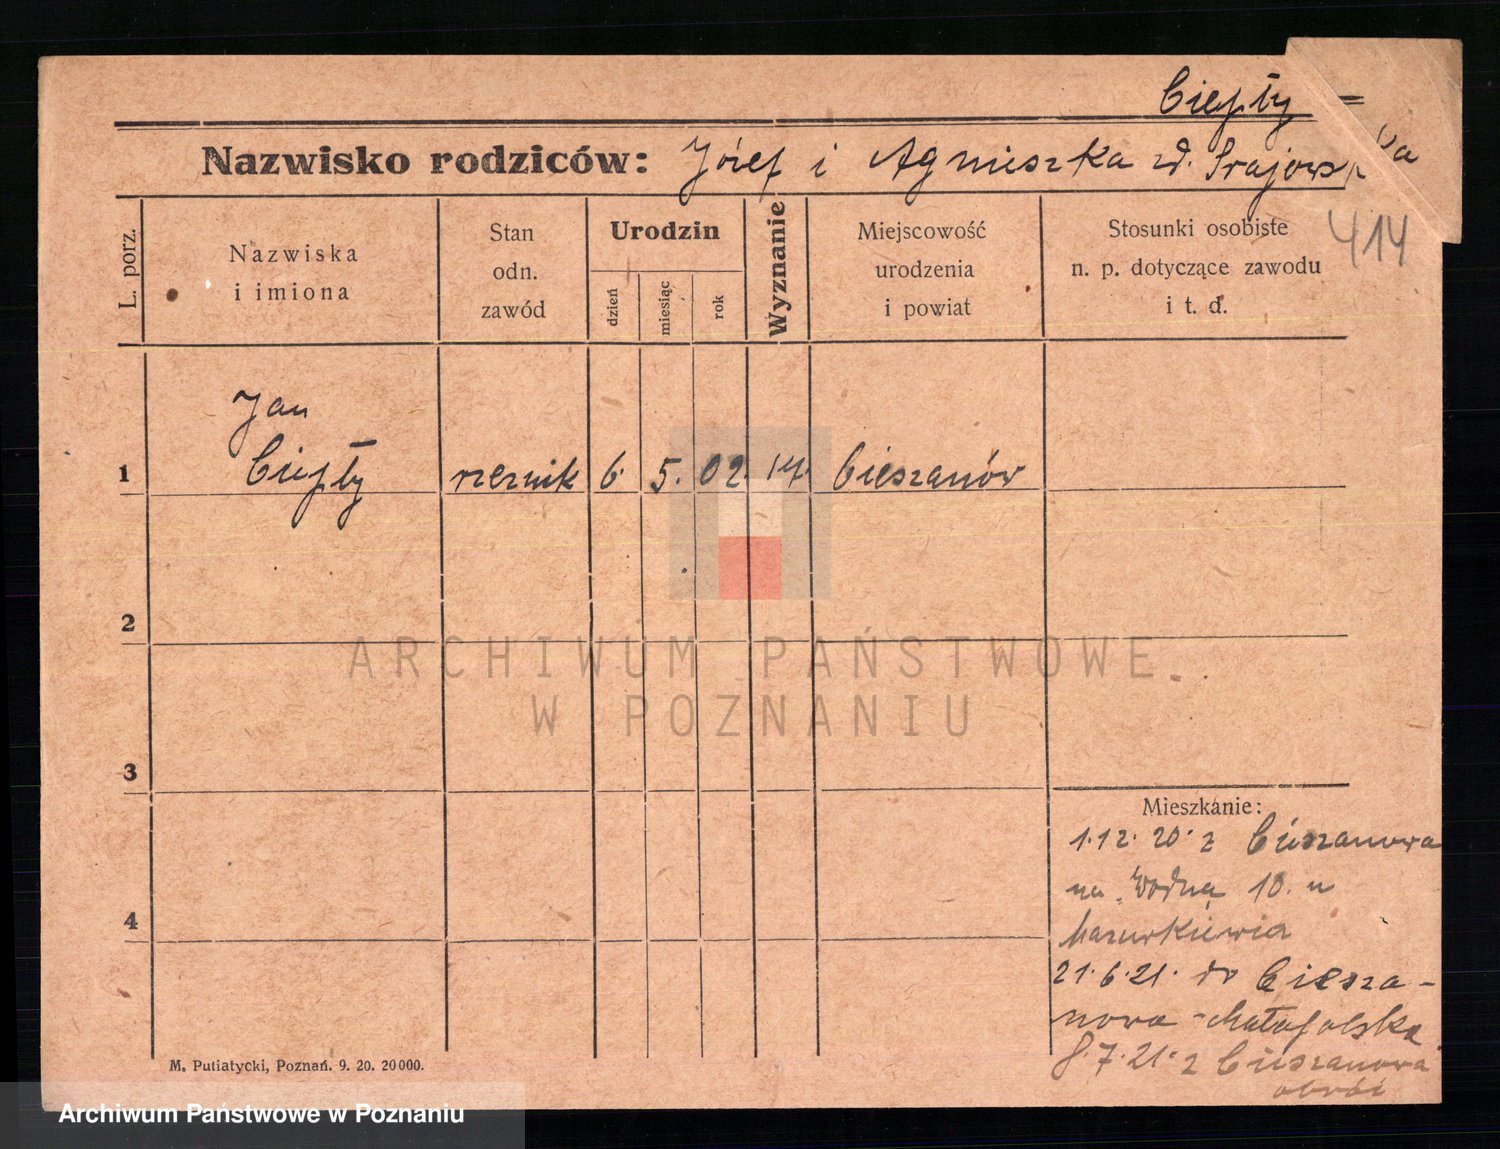 Ciepły
Nazwisko rodziców: Józef i Agnieszka zd.
414
L. porz.
Nazwiska
i imiona
Stan
odn.
zawód
Urodzin
dzień
miesiąc
rok
Wyznanie
Miejscowość
urodzenia
i powiat
Stosunki osobiste
n. p. dotyczące zawodu
i t. d.
Jan
1 Ciepły rzeznik 6. 5. 02. Cieszanów
2
3
Mieszkanie:
1.12.20. z Cieszanowa
na Wodną 10. u
4
21.6.21. do Ciesza-
nowa - Małopolska
8.7.21. z Cieszanowa
M. Putiatycki, Poznań. 9. 20. 20000.
ARCHIWUM PAŃSTWOWE
W POZNANIU
Archiwum Państwowe w Poznaniu